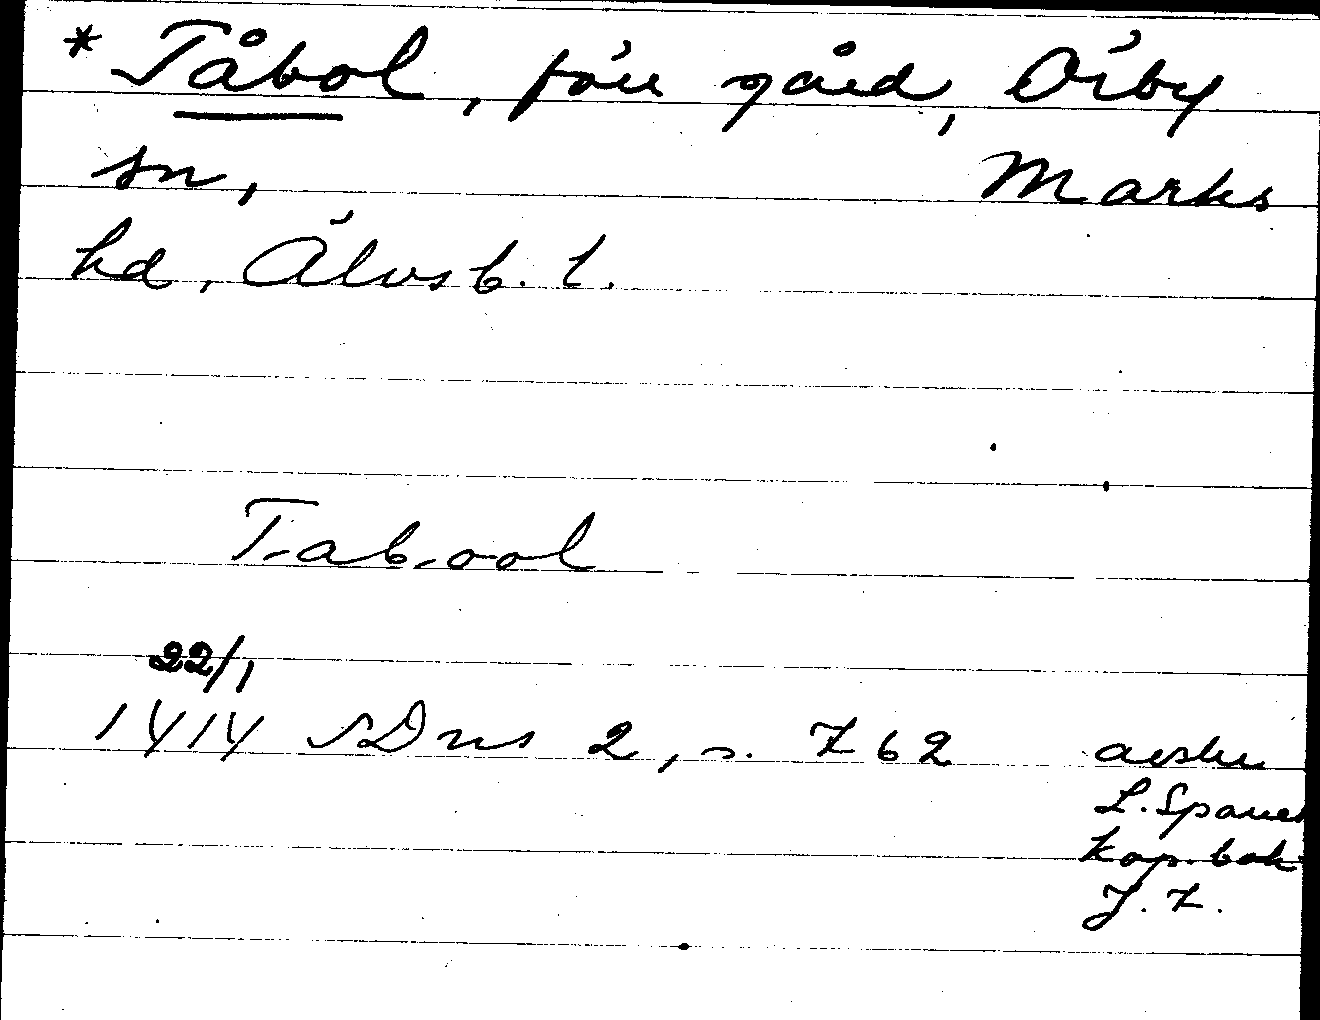 * Tåbol, förr gård, Örby
sn, Marks
hd, Älvsb. l.
Tabool
22/1
1414 SDns 2, s. 762 avskr
L. Sparres
kop.bok
J. 7.